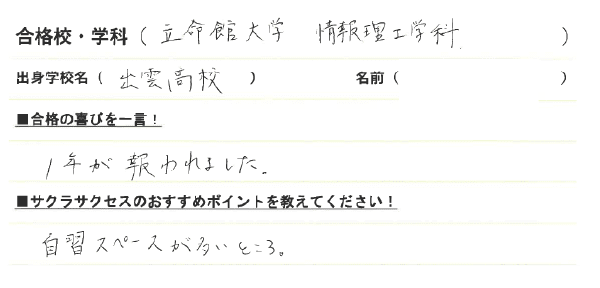 合格校・学科 ( 立命館大学 情報理工学科 )
出身学校名 ( 出雲高校 ) 名前 ( )
■合格の喜びを一言！
1年が報われました。
■サクラサクセスのおすすめポイントを教えてください！
自習スペースが多いところ。